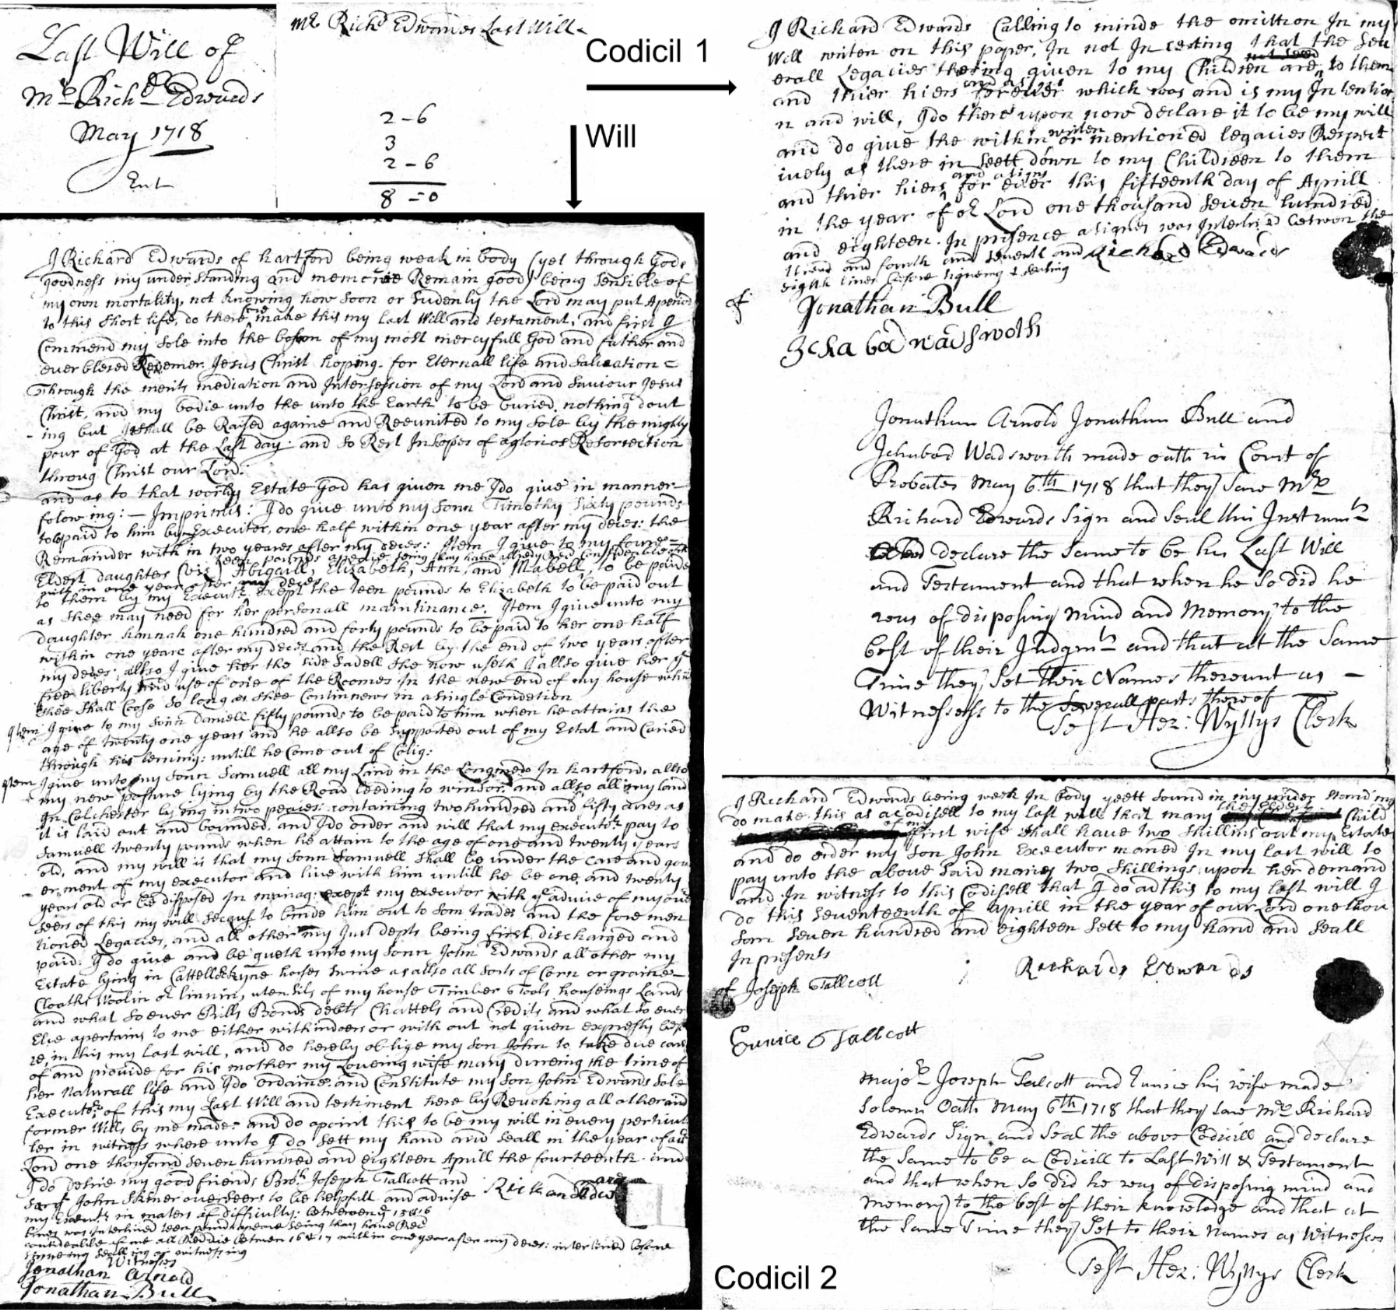 Last Will of
Mr Richd Edwards
May 1718
Ent
Mr Richd Edwards Last Will
2-6
3
2-6
8=0
Codicil 1
Will
I Richard Edwards of hartford being weak in body (yet through Gods
goodness my understanding and memoree Remain good) being sensible of
my own mortality, not knowing how soon or sudenly the Lord may put A period
to this short life, do there make this my Last Will and testament, and first I
Commend my Sole into the bosom of my most mercyfull God and father and
ever blesed Redemer Jesus Christ hoping for Eternall life and Salvation
Through the merits mediation and Intersession of my Lord and Saviour Jesus
Christ, and my bodie unto the unto the Earth to be buried nothing dout
-ing but It shall be Raised againe and Reeunited to my Sole by the mighty
pour of God at the Last day: and so Rest In hopes of a glorios Resorrection
throug Christ our Lord:
and as to that worly Estate God has given me I do give in manner
folowing:- Imprimis: I do give unto my Sonn Timothy Sixty pounds
to be paid to him by Executer, one half within one year after my deces: the
Remainder with in two years after my deces: Item I give to my foure
Eldest daughters (viz Abigaill, Elizabeth, Ann, and Mabell, to be paide
to them by my Execut except the teen pounds to Elizabeth to be paid out
as shee may need for her personall maintinance. Item I give unto my
daughter hannah one hundred and forty pounds to be paid to her one half
within one yeare after my deces and the Rest by the end of two years after
my deces: allso I give her the side Sadell she now useth I allso give her ye
free liberty and use of one of the Roomes In the new End of my house whil
shee shall Cose so long as shee Continnews in a single Condetion
Item I give to my sonn daniell fifty pounds to be paid to him when he attains the
age of twenty one years and he allso be supported out of my Estat and Caried
through his lerning: untill he Come out of Colig:
Item I give unto my sonn Samuell all my Land in the Longmedo In hartford, allso
my new pasture lying by the Road leeding to winsor and allso all my land
In Colchester lying in two peces: containing two hundred and fifty acres as
it is laid out and bounded, and I do order and will that my executr pay to
Samuell twenty pounds when he attain to the age of one and twenty years
old, and my will is that my sonn Samuell shall be under the Care and gov
er.ment of my executor and live with him untill he be one and twenty
years old or be disposed In mariag: exept my executor with ye advice of my over
seers of this my will see guf to binde him out to som trade: and the fore men
tioned Legacies, and all other my Just depts being first discharged and
paid: I do give and be queth unto my sonn John Edwards all other my
Estate lying in Cattell horses swine as allso all sorts of Corn or graine
Cloaths Woolin or linnin, utensils of my house Timber Tools houseings Lands
and what so ever Bills Bonds debts Chattels and Credits and what so ever
Else apertains to me either within dors or with out not given expresly befo
re in this my Last will, and do hereby oblige my son John to take due care
of and provide for his mother my Loveing wife mary dureing the time of
her Naturall life and I do ordaine and Constitute my son John Edwards Sole
Executr of this my Last Will and testiment here by Revoking all other and
former Wills by me made: and do apoint this to be my will in every perticu
ler in witness where unto I do sett my hand and seall in the year of our
Lord one thousand seven hundred and eighteen Aprill the fourteenth: and
I do desire my good friends Joseph Tallcott and
John Skiner overseers to be helpfull and advise
my Execut in maters of difficulty: betweene 15 & 16
Richard Edwa
Witneses
Jonathan Arnold
Jonathan Bull
I Richard Edwards Calling to minde the omition In my
Will writen on this paper, In not In certing that the Sev
erall Legacies thering given to my Children are to them
and thier hiers and asigns forever which was and is my Intention
n and will, I do there upon now declare it to be my will
and do give the within writen or mentioned legacies Respect
ively as there in sett down to my Childreen to them
and thier hiers and asigns for ever this fifteenth day of Aprill
in the year of or Lord one thousand seven hundred
and eighteen. In presence asignes was Interlined betwen the
third and fourth and seventh and Richard Edwards
eighth lines before signeing & sealing
of
Jonathan Bull
Ichabod wadsworth
Jonathan Arnold Jonathan Bull and
Ichabod Wadsworth made oath in Court of
Probates May 6th 1718 that they saw Mr
Richard Edwards Sign and Seal this Instrumt
declare the same to be his Last Will
and Testament and that when he so did he
was of disposing mind and Memory to the
best of their Judgmt and that at the same
Time they set their Names thereunt as -
Witnesses to the severall parts thereof
Test Hez: Wyllys Clerk
I Richard Edwards being week In body yeett sound in my under stand ing
do make this as a codisell to my last will that mary the eldest Child
of my first wife shall have two shillins out my Estate
and do order my son John Executor maned In my last will to
pay unto the above said marey two shillings upon her demand
and In witness to this Codisell that I do ad this to my last will I
do this seventeenth of aprill in the year of our Lord one thou
sam seven hundred and eighteen sett to my hand and seall
In presents
of Joseph Tallcott
Richards Edwards
Eunice Tallcott
Majer Joseph Talcott and Eunice his wife made
Solemn Oath May 6th 1718 that they saw Mr Richard
Edwards Sign and Seal the above Codicill and declare
the same to be a Codicill to Last Will & Testament
and that when so did he was of disposing mind and
memory to the best of their knowledge and that at
the same Time they set to their names as Witnesses
Test Hez: Wyllys Clerk
Codicil 2